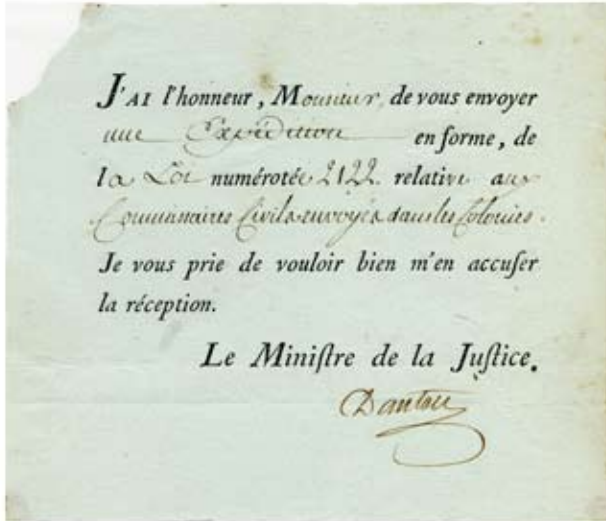 J'AI l'honneur, Monsieur, de vous envoyer
une Expédition en forme, de
la Loi numérotée 2122. relative aux
Commissaires Civils envoyés dans les Colonies.
Je vous prie de vouloir bien m'en accuſer
la réception.
Le Miniſtre de la Juſtice.
Danton